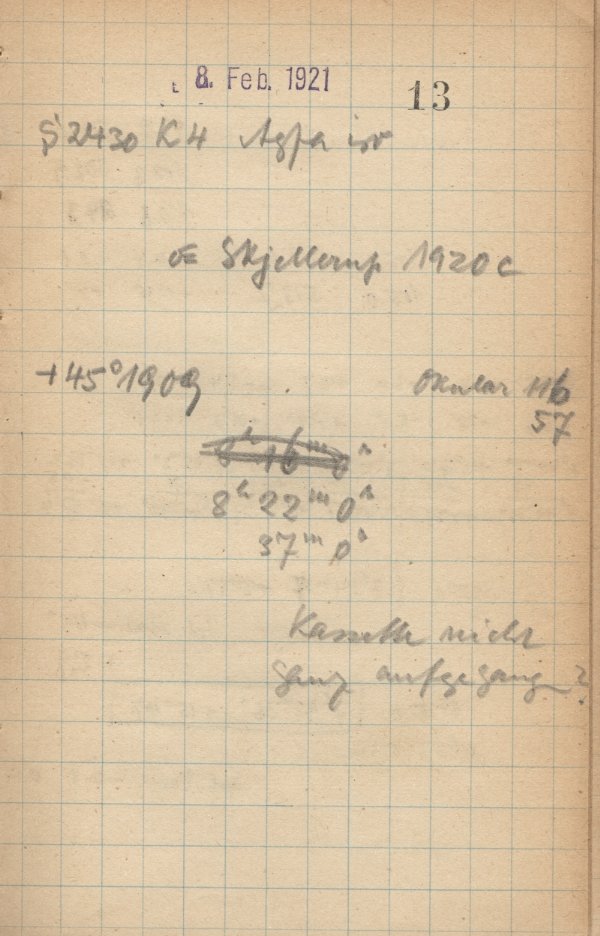 8. Feb. 1921 13
S 2430 K4 Agfa iso
Skjellerup 1920c
+45°1909 Okular 116
57
8h 16m 0s
8h 22m 0s
37m 0s
Kassette nicht
ganz aufgegangen?